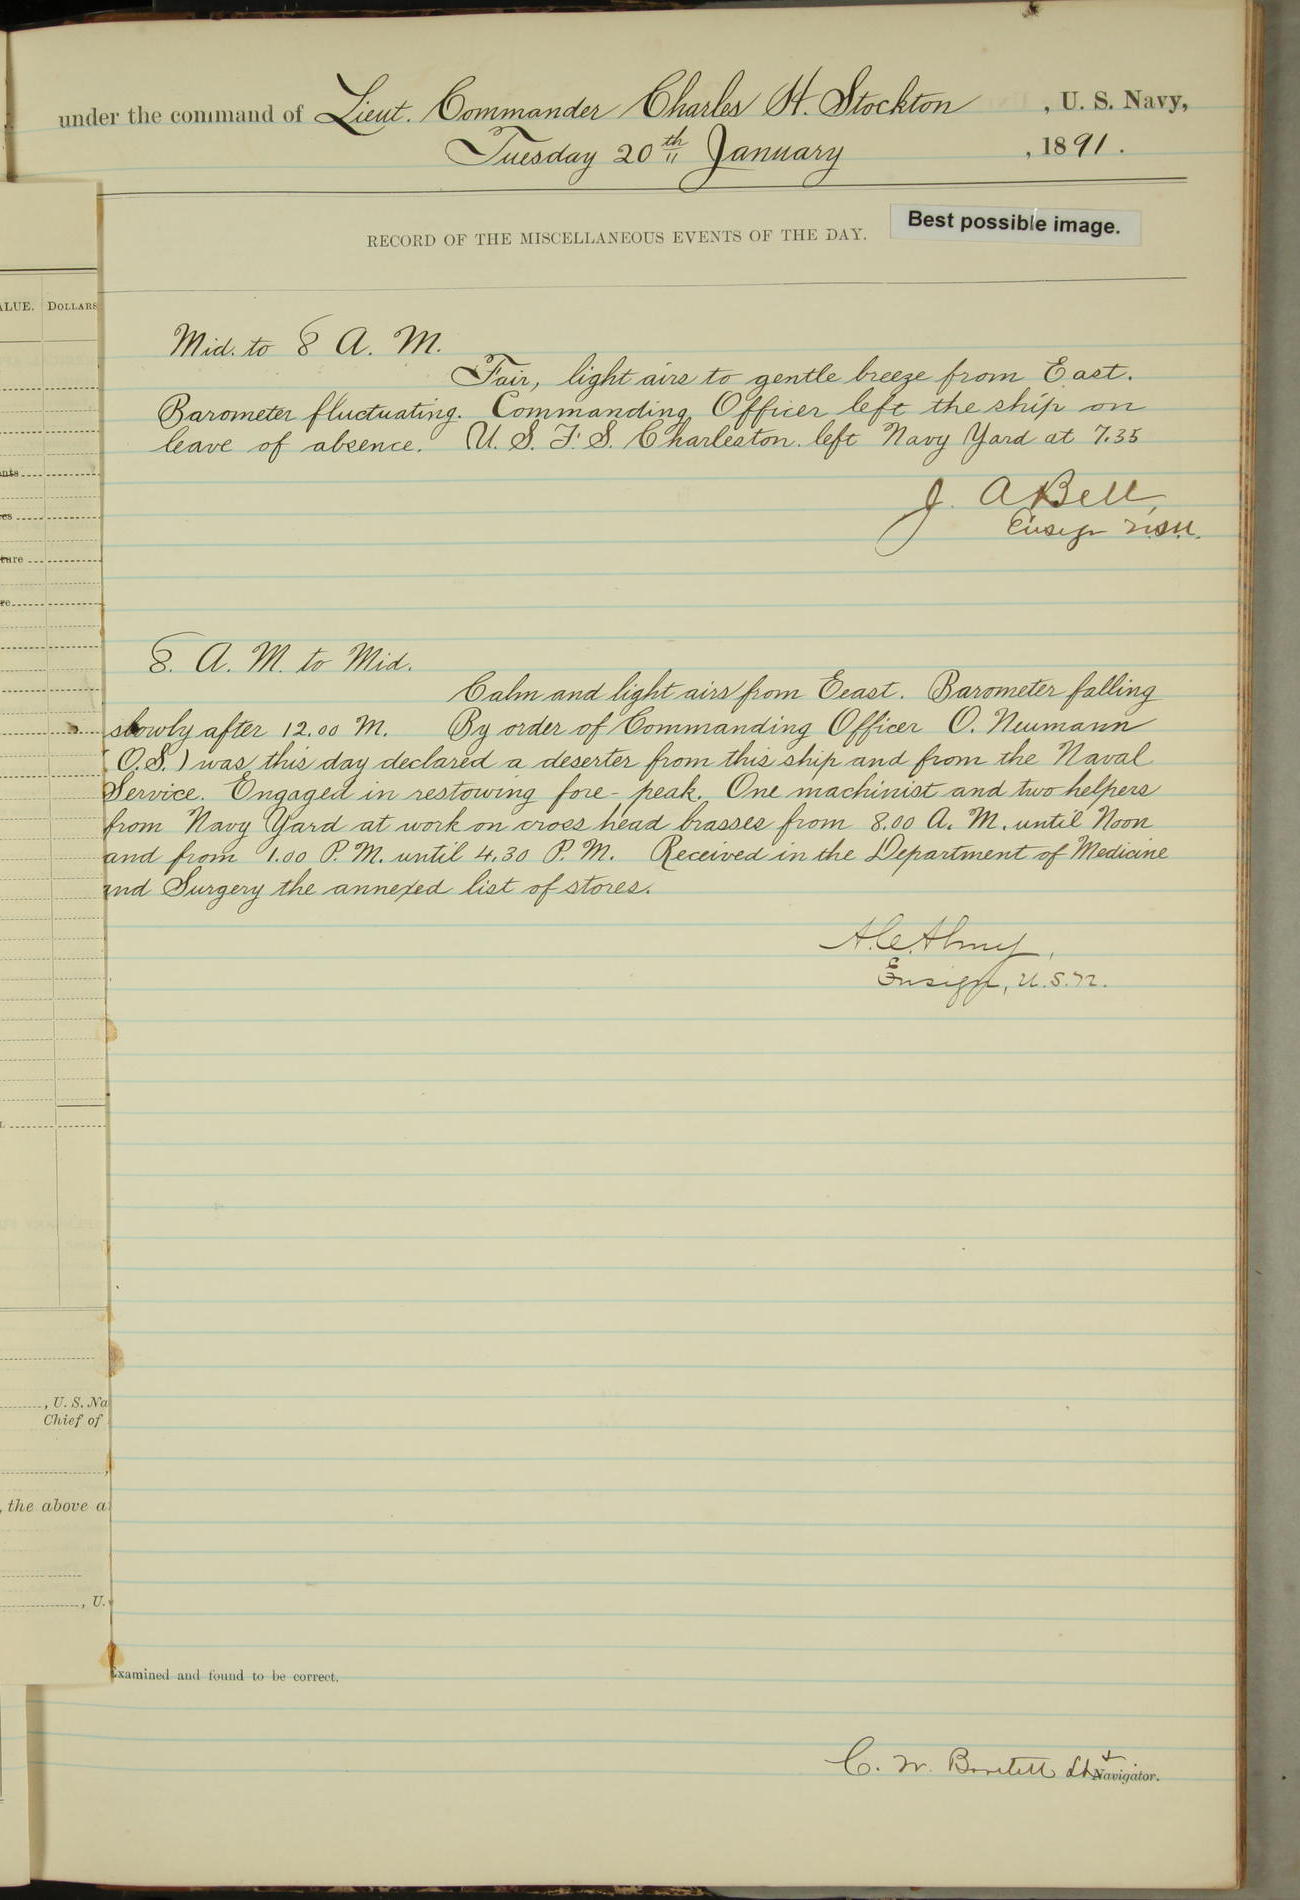 under the command of Lieut. Commander Charles H. Stockton , U. S. Navy,
Tuesday 20th January , 1891.
RECORD OF THE MISCELLANEOUS EVENTS OF THE DAY.
Best possible image.
ALUE. DOLLARS
Mid. to 8 A. M.
Fair, light airs to gentle breeze from East.
Barometer fluctuating. Commanding Officer left the ship on
leave of absence. U. S. F. S. Charleston left Navy Yard at 7.35
J. A Bell,
Ensign U.S.N.
nts
es
ture
re
8. A. M. to Mid.
Calm and light airs from Eeast. Barometer falling
slowly after 12.00 M. By order of Commanding Officer O. Neumann
(O.S.) was this day declared a deserter from this ship and from the Naval
Service. Engaged in restowing fore-peak. One machinist and two helpers
from Navy Yard at work on cross head brasses from 8.00 A. M. until Noon
and from 1.00 P. M. until 4.30 P. M. Received in the Department of Medicine
and Surgery the annexed list of stores.
Ensign, U.S.N.
, U. S. Na
Chief of
, the above a
, U.
Examined and found to be correct.
C. W. Bartlett Lt
Navigator.